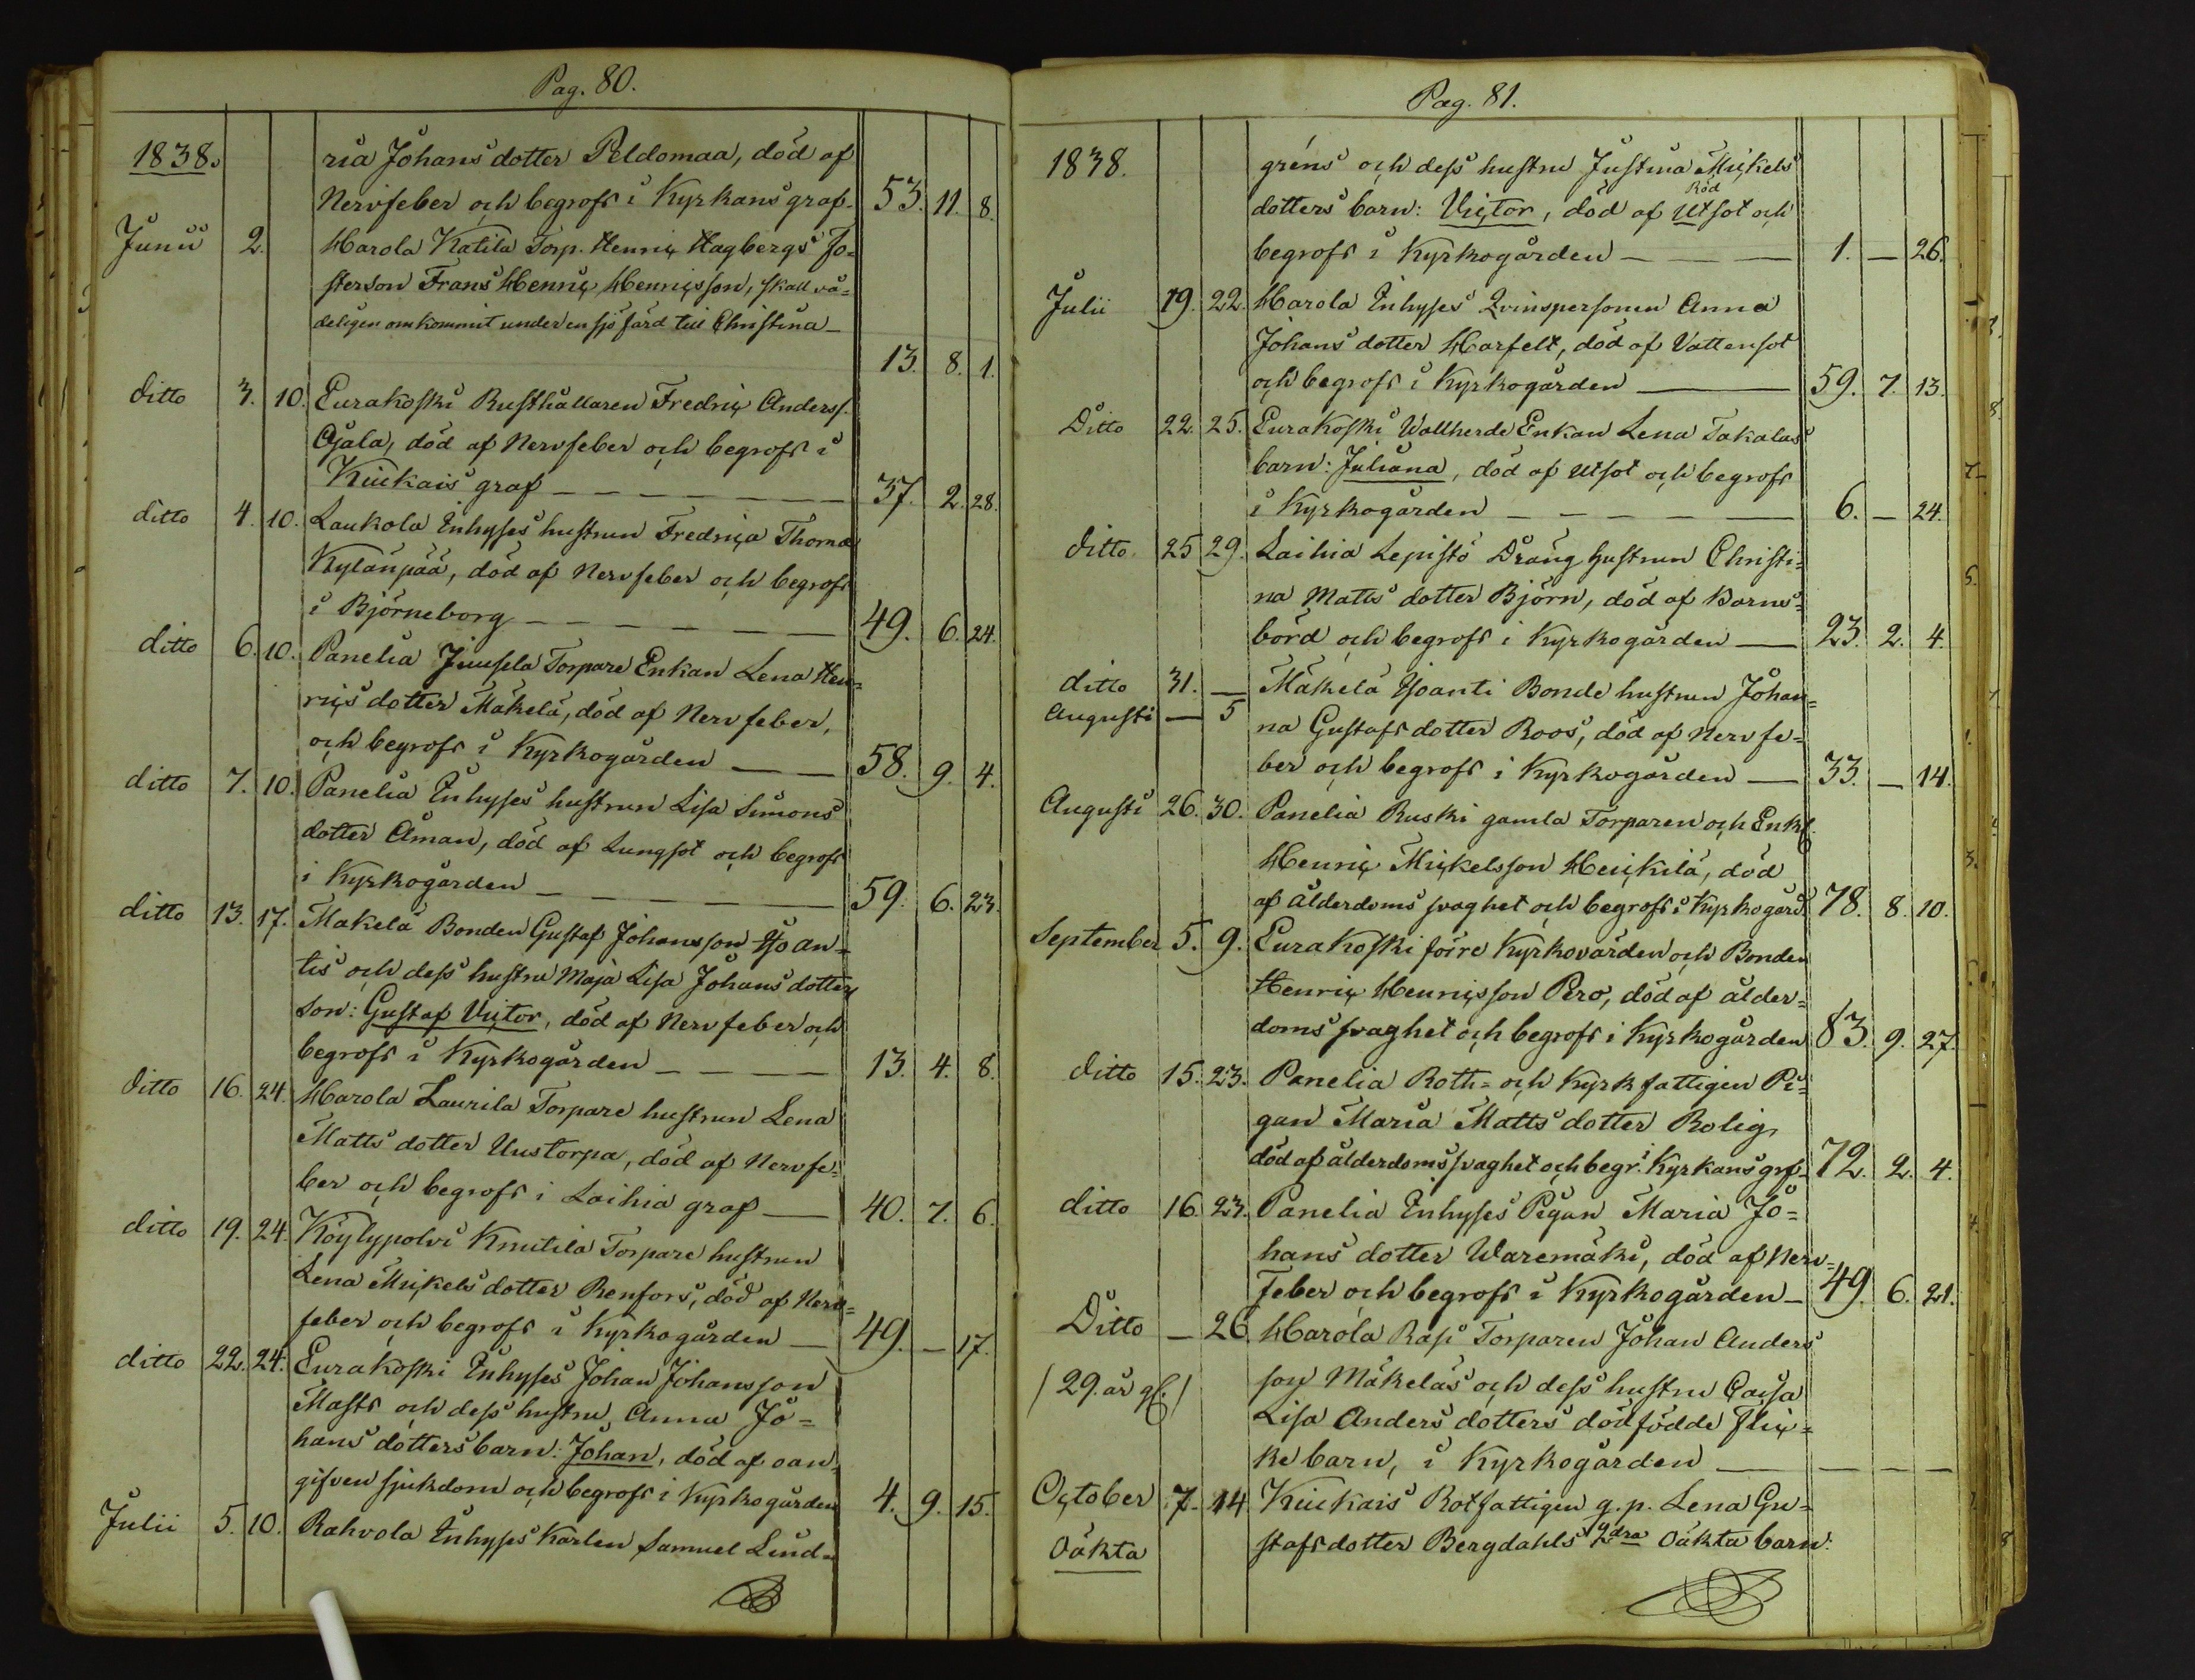 Pag. 80.
1838. ria Johans dotter Peldomaa, död af
Nervfeber och begrofs i Kyrkans graf. 53. 11. 8.
Junii 2. Harola Katila Torp. Henric Hagbergs Fo=
sterson Frans Henric Henricsson, skall vå=
deligen omkommit under en sjöfärd till Christina —
13. 8. 1.
ditto 3. 10. Eurakoski Rusthållaren Fredric Anderss.
Ajala, död af Nervfeber och begrofs i
Kiukais graf — 37. 2. 28.
ditto 4. 10. Laukola Inhyses hustrun Fredrica Thomæ
Kylänpää, död af Nervfeber och begrofs
i Björneborg — 49. 6. 24.
ditto 6. 10. Panelia Juusela Torpare Enkan Lena Hen=
rics dotter Mäkelä, död af Nervfeber,
och begrofs i Kyrkogården — 58. 9. 4.
ditto 7. 10. Panelia Inhyses hustrun Lisa Simons
dotter Åman, död af Lungsot och begrofs
i Kyrkogården — 59. 6. 23.
ditto 13. 17. Makelä Bonden Gustaf Johansson Yoan=
tis och dess hustru Maja Lisa Johans dotters
son: Gustaf Victor, död af Nervfeber och
begrofs i Kyrkogården — 13. 4. 8.
ditto 16. 24. Harola Laurila Torpare hustrun Lena
Matts dotter Uustorpa, död af Nervfe=
ber och begrofs i Laihia graf — 40. 7. 6.
ditto 19. 24. Köylypolvi Knutila Torpare hustrun
Lena Mickels dotter Renfors, död af Nerv=
feber och begrofs i Kyrkogården — 49. — 17.
ditto 22. 24. Eurakoski Inhyses Johan Johansson
Masts och dess hustru Anna Jo=
hans dotters barn: Johan, död af oan=
gifven sjukdom och begrofs i Kyrkogården 4. 9. 15.
Julii 5. 10. Rahvola Inhyses Karlen Samuel Lind=
Pag. 81.
1838. gréns och dess hustru Justina Mickels
Röd
dotters barn: Victor, död af Utsot och
begrofs i Kyrkogården — 1. — 26.
Julii 19. 22. Harola Inhyses Qvinspersonen Anna
Johans dotter Harfelt, död af Vattensot
och begrofs i Kyrkogården — 59. 7. 13.
Ditto 22. 25. Eurakoski Wallherde Enkan Lena Takalas
barn: Juliana, död af Utsot och begrofs
i Kyrkogården — 6. — 24.
ditto 25 29. Laihia Lepistö Dräng hustrun Christi=
na Matts dotter Björn, död af Barns=
börd och begrofs i Kyrkogården — 23. 2. 4.
ditto 31. — Mäkelä Yoanti Bonde hustrun Johan=
Augusti — 5 na Gustafs dotter Roos, död af Nervfe=
ber och begrofs i Kyrkogården — 33. — 14.
Augusti 26. 30. Panelia Ruski gamla Torparen och Enkl.
Henric Mickelsson Heickilä, död
af ålderdoms svaghet och begrofs i Kyrkogård. 78. 8. 10.
September 5. 9. Eurakoski förre Kyrkovärden och Bonden
Henric Henricsson Pero, död af ålder=
doms svaghet och begrofs i Kyrkogården 83. 9. 27.
ditto 15. 23. Panelia Roth= och Kyrkfattigen Pi=
gan Maria Matts dotter Rolig,
död af ålderdomssvaghet och begr. i Kyrkans grf. 72. 2. 4.
ditto 16. 23. Panelia Inhyses Pigan Maria Jo=
hans dotter Waremäki, död af Nerv=
Feber och begrofs i Kyrkogården — 49. 6. 21.
Ditto — 26 Harola Rasi Torparen Johan Anders
/29. år gl./ son Mäkeläs och dess hustru Caisa
Lisa Anders dotters dödfödde Flic=
ke barn, i Kyrkogården — — — —
October 7. 14 Kiukais Rotfattigen q.p. Lena Gu=
Oäkta stafsdotter Bergdahls 2dra Oäkta barn: